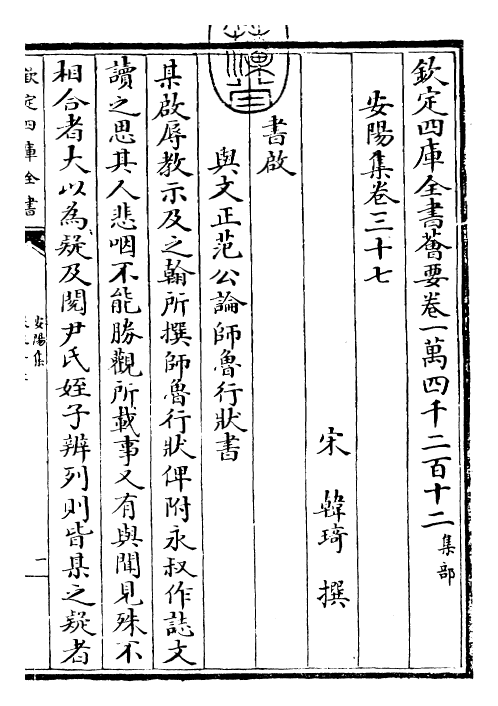 欽定四庫全書薈要卷一萬四千二百十二 集部
安陽集卷三十七
宋 韓琦 撰
書啟
與文正范公論師魯行狀書
某啟辱教示及之翰所撰師魯行狀俾附永叔作誌文
讀之思其人悲咽不能勝觀所載事又有與聞見殊不
相合者大以為疑及閱尹氏姪子辨列則皆某之疑者
欽定四庫全書
安陽集
一